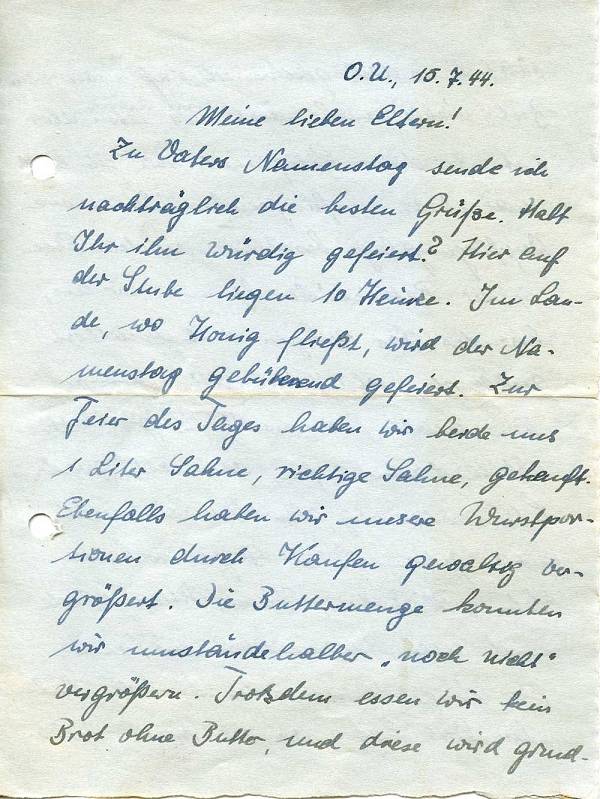 O.U., 15.7.44.
Meine lieben Eltern!
Zu Vaters Namenstag sende ich
nachträglich die besten Grüße. Habt
Ihr ihn würdig gefeiert? Hier auf
der Stube liegen 10 Heinze. Im Lan-
de, wo Honig fließt, wird der Na-
menstag gebührend gefeiert. Zur
Feier des Tages haben wir beide uns
1 Liter Sahne, richtige Sahne, gekauft.
Ebenfalls haben wir unsere Wurstpor-
tionen durch Kaufen gewaltig ver-
größert. Die Buttermenge konnten
wir umständehalber „noch nicht"
vergrößern. Trotzdem essen wir kein
Brot ohne Butter, und diese wird grund-